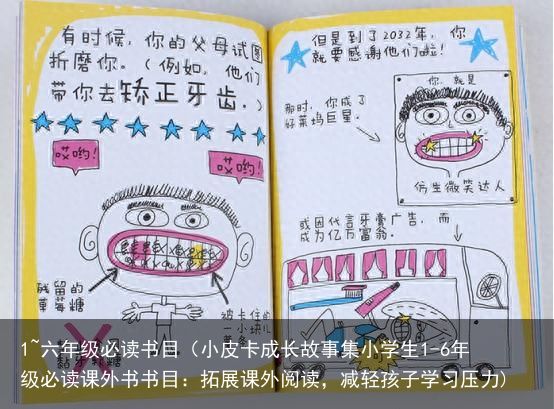 有时候，你的父母试图
折磨你。（例如，他们
带你去矫正牙齿。）
哎哟！
哎哟！
残留的
草莓糖
但是到了2032年，你
就要感谢他们啦！
你，就是
那时，你成了
好莱坞巨星。
仿生微笑达人
或因代言牙膏广告，而
成为亿万富翁。
1~六年级必读书目（小皮卡成长故事集小学生1-6年
级必读课外书书目：拓展课外阅读，减轻孩子学习压力)